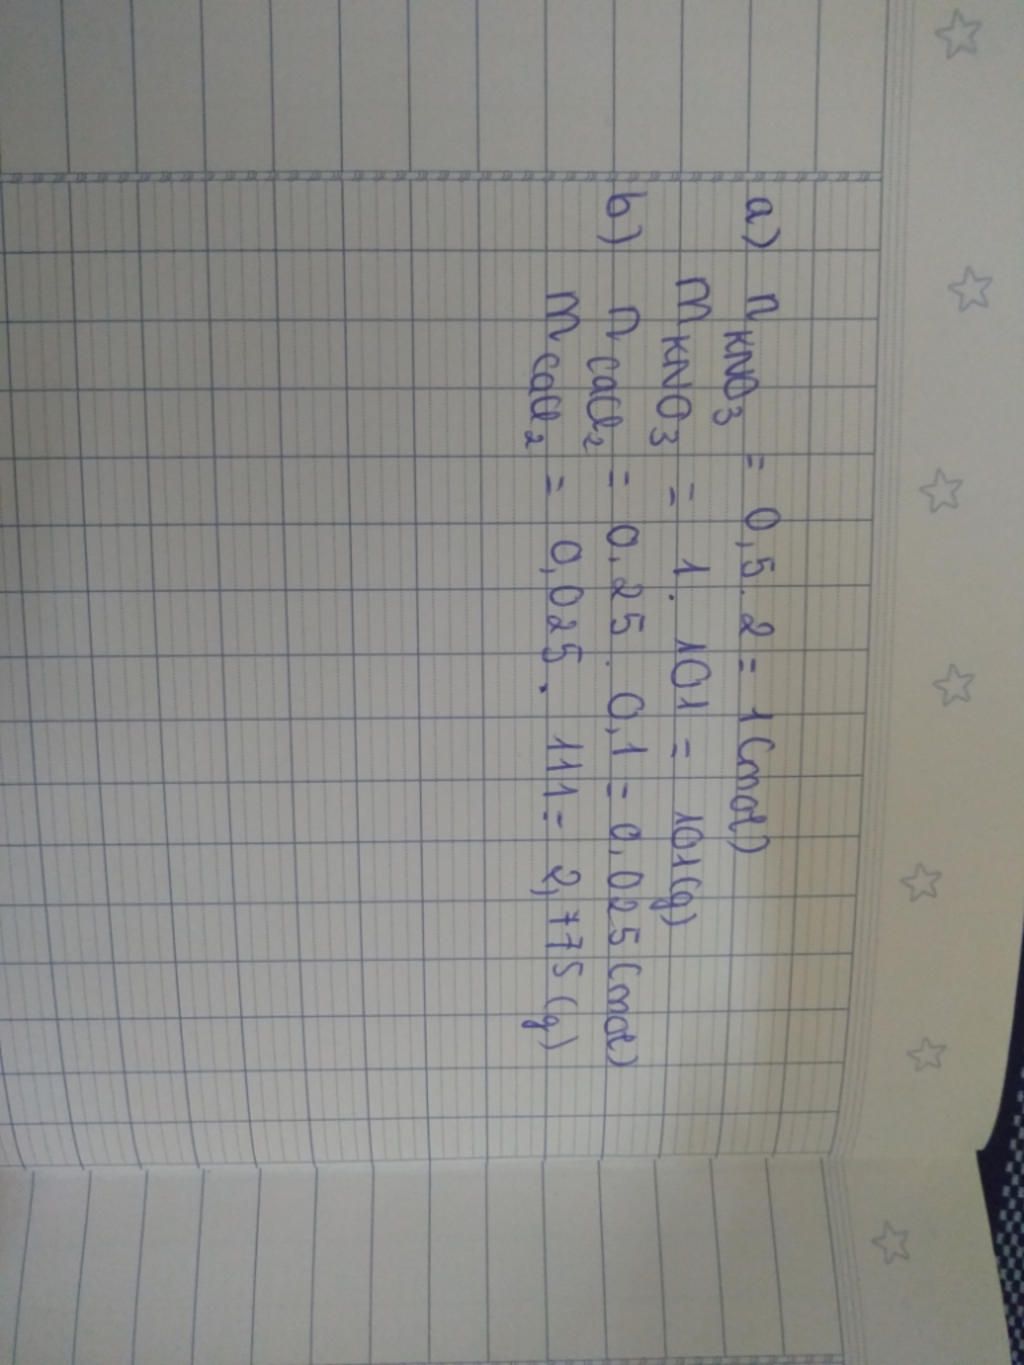 a) n KNO3 = 0,5.2 = 1 (mol)
m KNO3 = 1. 101 = 101 (g)
b) n CaCl2 = 0,25 . 0,1 = 0,025 (mol)
m CaCl2 = 0,025. 111 = 2,775 (g)